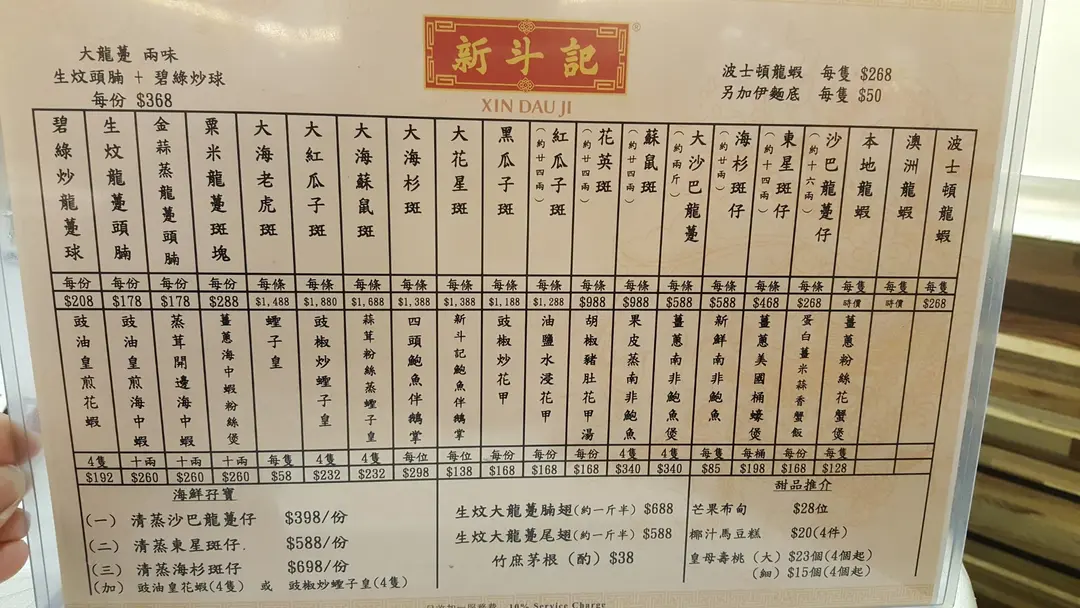 新斗記
®
XIN DAU JI
大龍躉 兩味
生炆頭腩 + 碧綠炒球
每份 $368
波士頓龍蝦 每隻 $268
另加伊麵底 每隻 $50
碧綠炒龍躉球 每份 $208
生炆龍躉頭腩 每份 $178
金蒜蒸龍躉頭腩 每份 $178
粟米龍躉斑塊 每份 $288
大海老虎斑 每條 $1,488
大紅瓜子斑 每條 $1,880
大海蘇鼠斑 每條 $1,688
大海杉斑 每條 $1,388
大花星斑 每條 $1,388
黑瓜子斑 每條 $1,188
紅瓜子斑(約廿四兩) 每條 $1,288
花英斑(約廿四兩) 每條 $988
蘇鼠斑(約廿四兩) 每條 $988
大沙巴龍躉(約兩斤) 每條 $588
海杉斑仔(約廿兩) 每條 $588
東星斑仔(約十四兩) 每條 $468
沙巴龍躉仔(約十六兩) 每條 $268
本地龍蝦 每隻 時價
澳洲龍蝦 每隻 時價
波士頓龍蝦 每隻 $268
豉油皇煎花蝦 4隻 $192
豉油皇煎海中蝦 十兩 $260
蒸茸開邊海中蝦 十兩 $260
薑蔥海中蝦粉絲煲 十兩 $260
蟶子皇 每隻 $58
豉椒炒蟶子皇 4隻 $232
蒜茸粉絲蒸蟶子皇 4隻 $232
四頭鮑魚伴鵝掌 每位 $298
新斗記鮑魚伴鵝掌 每位 $138
豉椒炒花甲 每份 $168
油鹽水浸花甲 每份 $168
胡椒豬肚花甲湯 每份 $168
果皮蒸南非鮑魚 4隻 $340
薑蔥南非鮑魚煲 4隻 $340
新鮮南非鮑魚 每隻 $85
薑蔥美國桶蠔煲 每桶 $198
蛋白薑米蒜香蟹飯 每份 $168
薑蔥粉絲花蟹煲 每隻 $128
海鮮孖寶
(一) 清蒸沙巴龍躉仔 $398/份
(二) 清蒸東星斑仔. $588/份
(三) 清蒸海杉斑仔 $698/份
(加) 豉油皇花蝦(4隻) 或 豉椒炒蟶子皇(4隻)
生炆大龍躉腩翅(約一斤半) $688
生炆大龍躉尾翅(約一斤半) $588
竹庶茅根 (酌) $38
甜品推介
芒果布甸 $28位
椰汁馬豆糕 $20(4件)
皇母壽桃 (大) $23個(4個起)
(細) $15個(4個起)
10% Service Charge